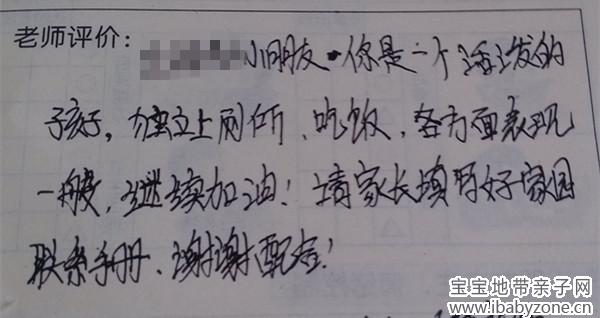 老师评价：小朋友，你是一个活泼的
孩子，独立上厕所、吃饭，各方面表现
一般，继续加油！请家长填写好家园
联系手册、谢谢配合！
宝宝地带亲子网
www.ibabyzone.cn